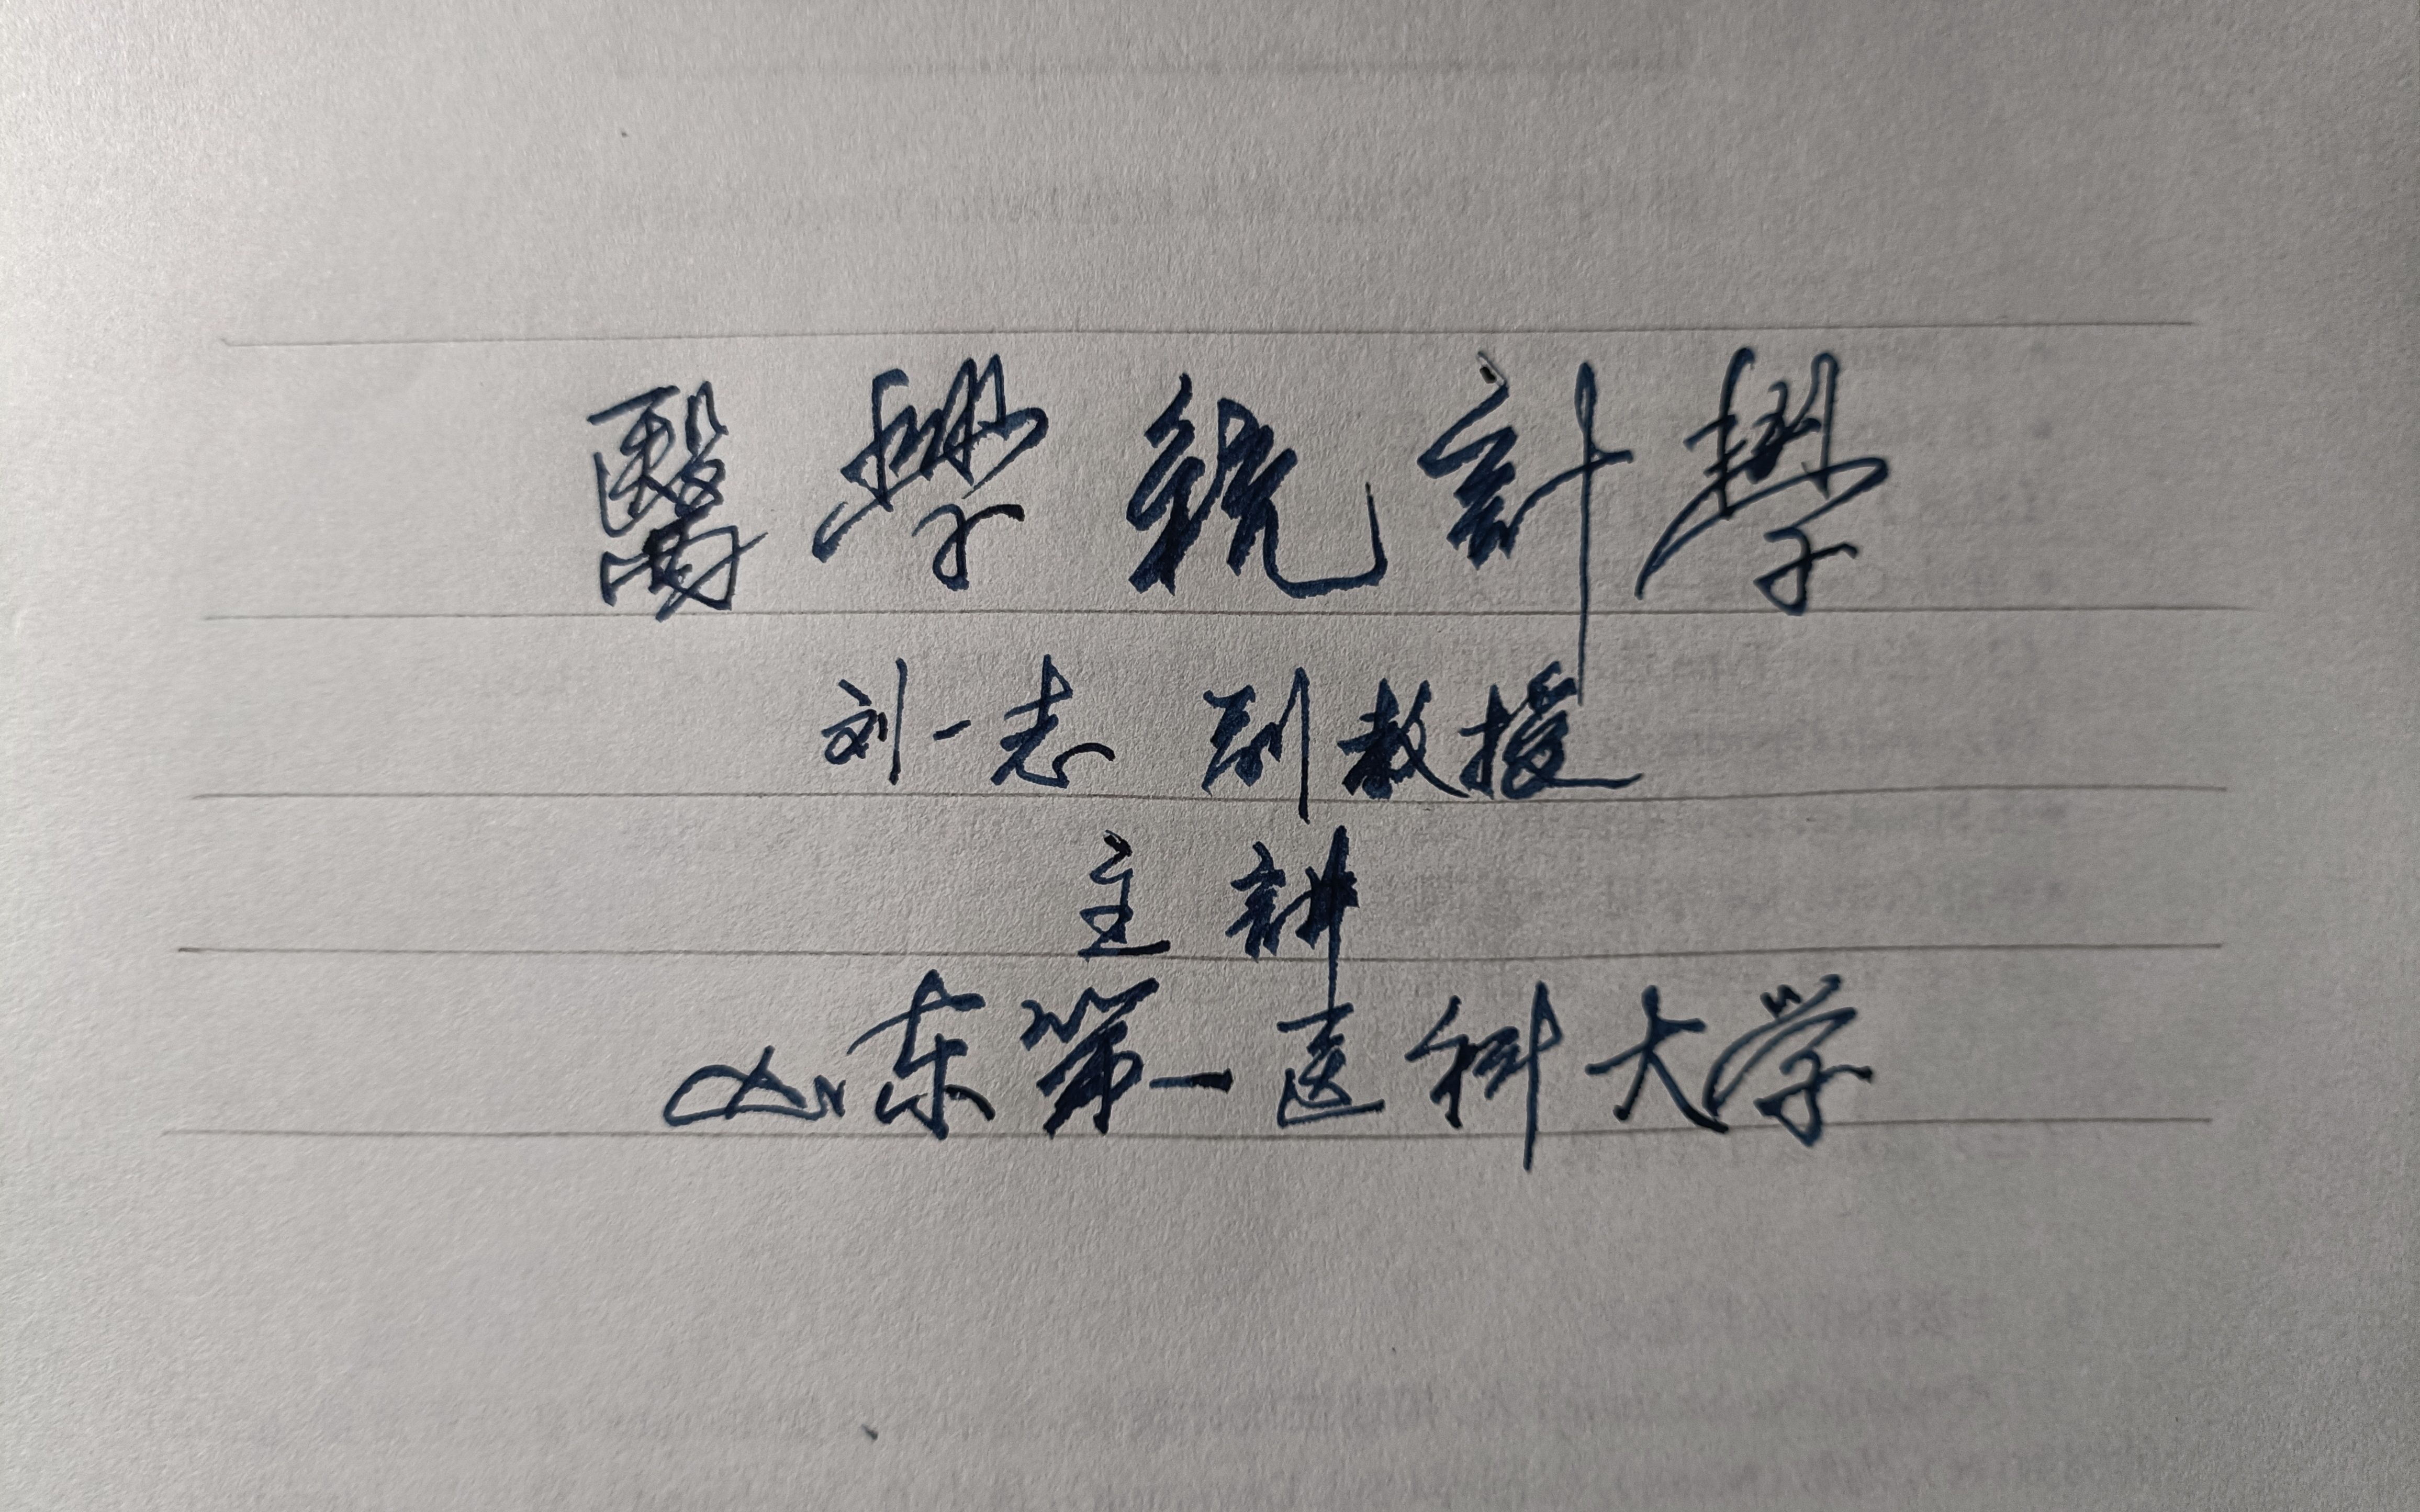 醫學統計學
刘一志 副教授
主讲
山东第一医科大学